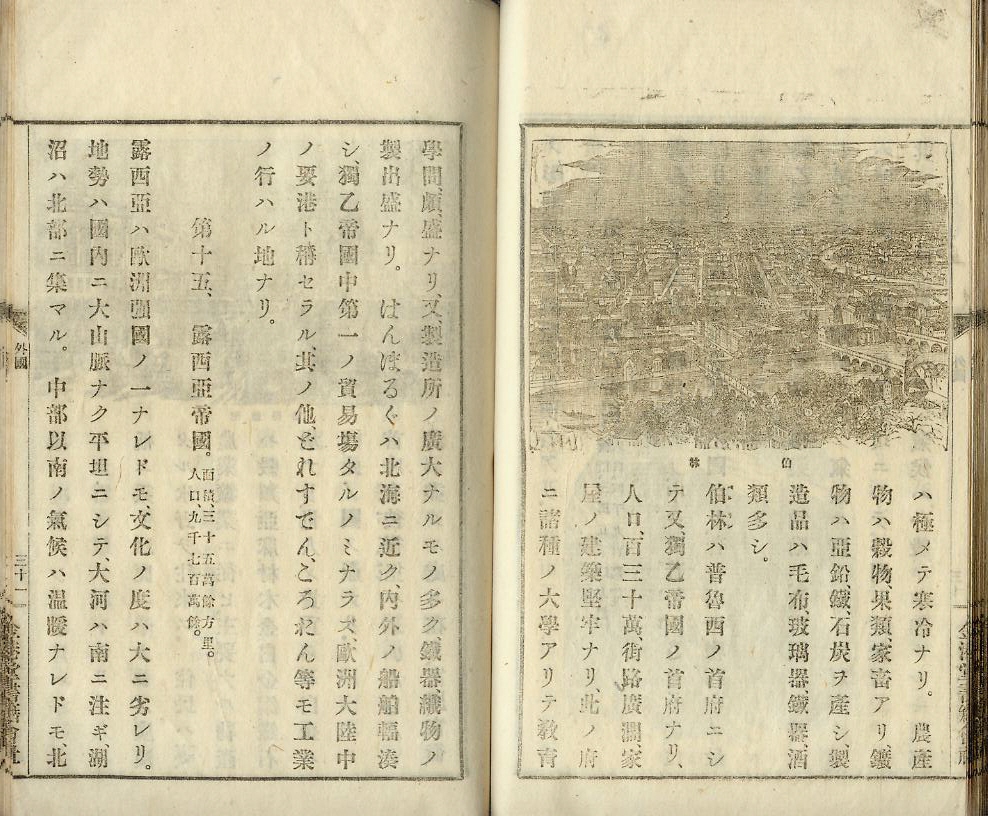 伯林
ハ極メテ寒冷ナリ。農産
物ハ穀物果類、家畜アリ、鑛
物ハ亞鉛、鐵、石炭ヲ産シ、製
造品ハ毛布、玻璃器、鐵器、酒
類多シ。
伯林ハ普魯西ノ首府ニシ
テ又、獨乙帝國ノ首府ナリ、
人口、百三十萬、街路廣濶、家
屋ノ建築堅牢ナリ、此ノ府
ニ諸種ノ大學アリテ教育
學問、頗、盛ナリ、又、製造所ノ廣大ナルモノ多ク、鐵器、織物ノ
製出盛ナリ。はんぼるぐハ北海ニ近ク、内外ノ船舶輻湊
シ、獨乙帝國中第一ノ貿易塲タルノミナラズ、歐洲大陸中
ノ要港ト稱セラル、其ノ他、どれすでん、ころれん等モ工業
ノ行ハル地ナリ。
第十五、露西亞帝國。面積、三十五萬餘方里。人口、九千七百萬餘。
露西亞ハ歐洲強國ノ一ナレドモ、文化ノ度ハ大ニ劣レリ。
地勢ハ國内ニ大山脈ナク平坦ニシテ、大河ハ南ニ注ギ、湖
沼ハ北部ニ集マル。中部以南ノ氣候ハ温暖ナレドモ、北
外國
三十一